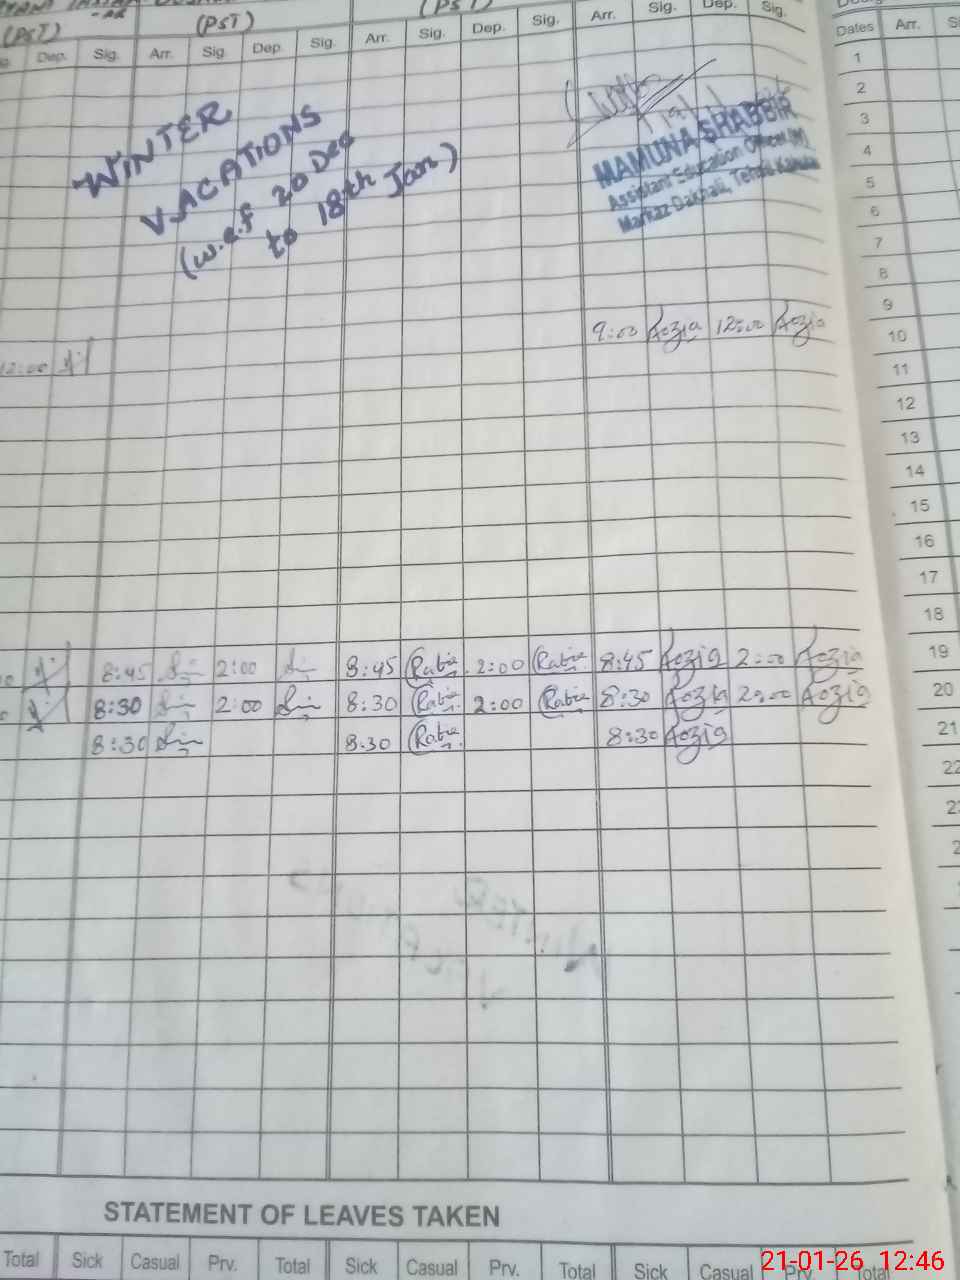 (PST) (PST) (PST)
Dep. Sig. Arr. Sig. Dep. Sig. Arr. Sig. Dep. Sig. Arr. Sig. Dep. Sig. Dates Arr.
WINTER
VACATIONS
(w.e.f 20 Dec
to 18th Jan)
MAMUNA SHABBIR
Assistant Education Officer (W)
Markaz Dakhali, Tehsil
1
2
3
4
5
6
7
8
9
9:00 Fozia 12:00 Fozia 10
12:00
11
12
13
14
15
16
17
18
8:45 2:00 8:45 Rabia 2:00 Rabia 8:45 Fozia 2:00 Fozia 19
8:30 2:00 8:30 Rabia 2:00 Rabia 8:30 Fozia 2:00 Fozia 20
8:30 8:30 Rabia 8:30 Fozia 21
22
STATEMENT OF LEAVES TAKEN
Total Sick Casual Prv. Total Sick Casual Prv. Total Sick Casual Prv. Total
21-01-26 12:46